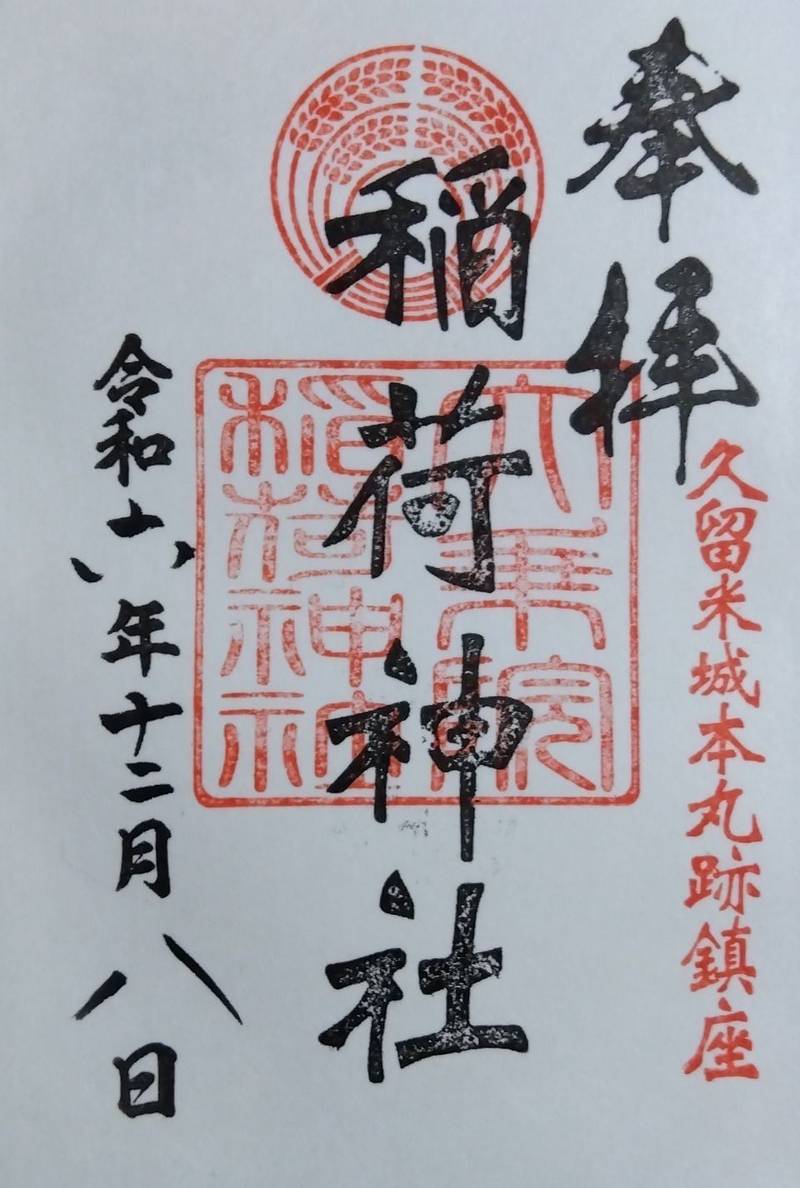 奉拝
久留米城本丸跡鎮座
稲荷神社
大乗院
稲荷神社
令和六年十二月八日